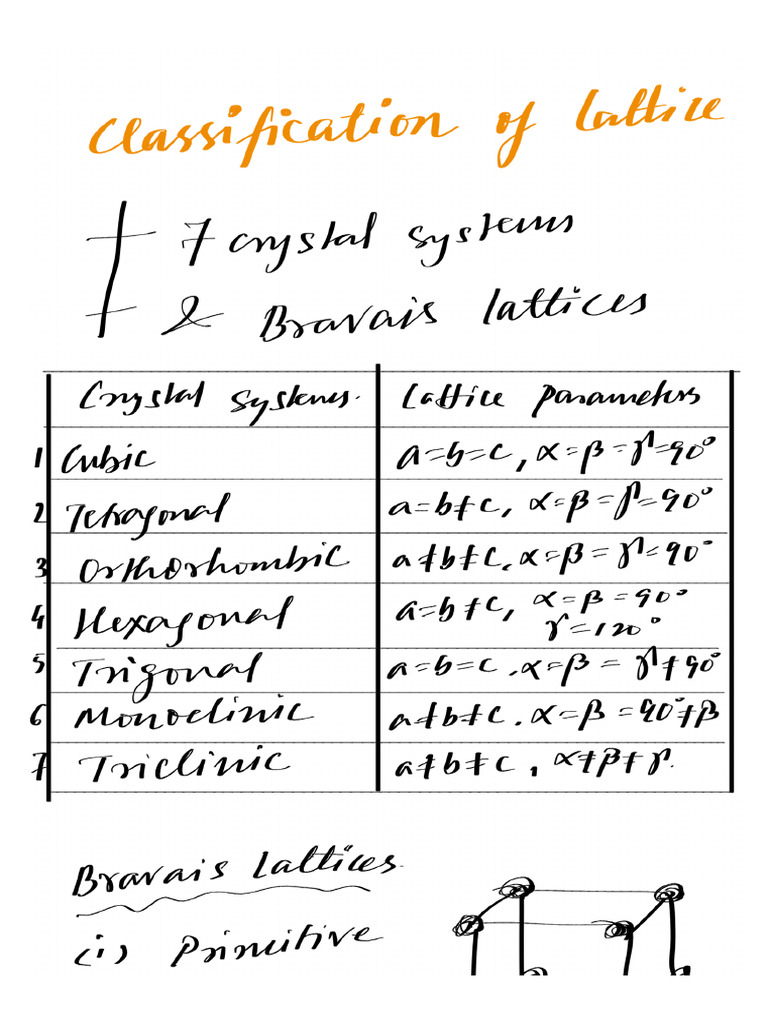 Classification of Lattice
7 crystal systems
& Bravais lattices
Crystal systems. Lattice Parameters
1 Cubic a=b=c, α=β=γ=90°
2 Tetragonal a=b≠c, α=β=γ=90°
3 Orthorhombic a≠b≠c, α=β=γ=90°
4 Hexagonal a=b≠c, α=β=90°
γ=120°
5 Trigonal a=b=c. α=β=γ≠90°
6 Monoclinic a≠b≠c. α=β=90°≠β
7 Triclinic a≠b≠c, α≠β≠γ.
Bravais Lattices.
(i) Primitive